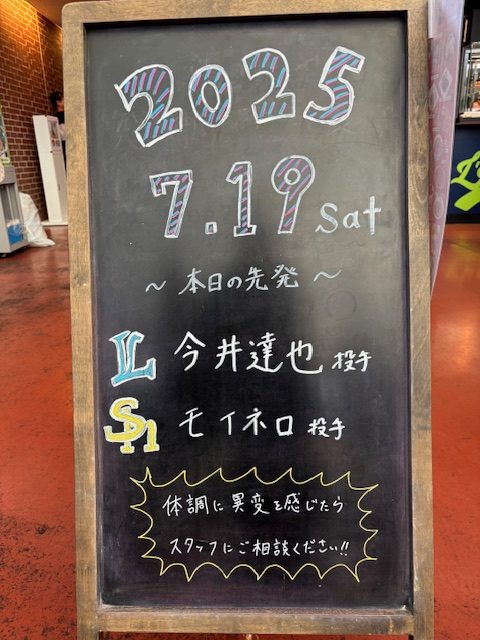 2025
7.19 Sat
～ 本日の先発 ～
L 今井達也 投手
SH モイネロ 投手
体調に異変を感じたら
スタッフにご相談ください!!